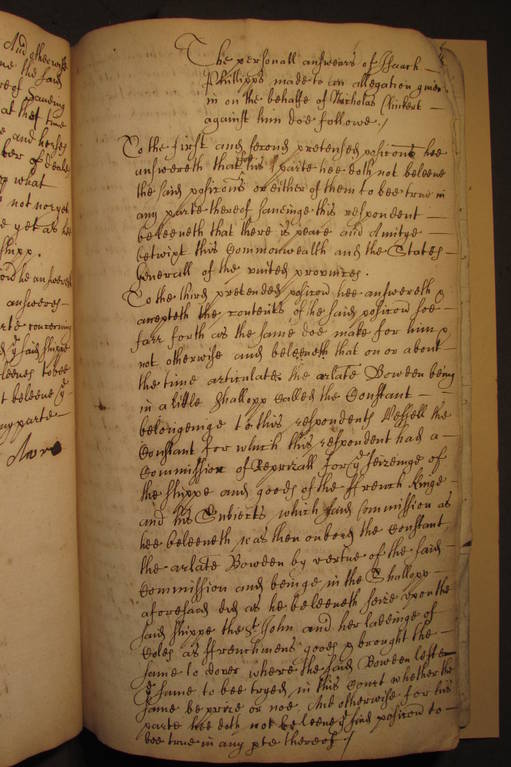 And otherwise
me the said
at the time
and horses
what
not nor yet
yet as he
shipp.
answeres
rte concerning
ye said shippe
leeves to bee
t beleeve ye
any parte
The personall answeares of Isaack
Phillipps made to an allegation given
in on the behalfe of Nicholas Clinkert
against him doe followe./
To the first and second pretensed positions hee
answereth that for his parte hee doth not beleeve
the said positions or either of them to bee true in
any parte thereof saveinge this respondent
beleeveth that there is peace and Amitye
betwixt this Commonwealth and the States
Generall of the united provinces.
To the third pretended position hee answereth &
accepteth the contents of the said position soe
farr forth as the same doe make for him &
not otherwise and beleeveth that on or about
the time articulate the arlate Bowden being
in a little Shallopp Called the Constant
belongeinge to this respondents Vessell the
Constant for which this respondent had a
Commission of Reprizall for ye seizeinge of
the shippe and goods of the ffrench Kinge
and his Subiects which said Commission as
hee beleeveth was then onbord the Constant
the arlate Bowden by vertue of the said
Commission and beinge in the Shallopp
aforesaid did as he beleeveth seize upon the
said shippe the St John and her ladeinge of
as ffrenchmens goods & brought the
same to dover where the said Bowden lefte
ye same to bee tryed in this Court whether the
same be prize or noe. And otherwise for his
parte hee doth not beleeve ye said position to
bee true in any pte thereof./